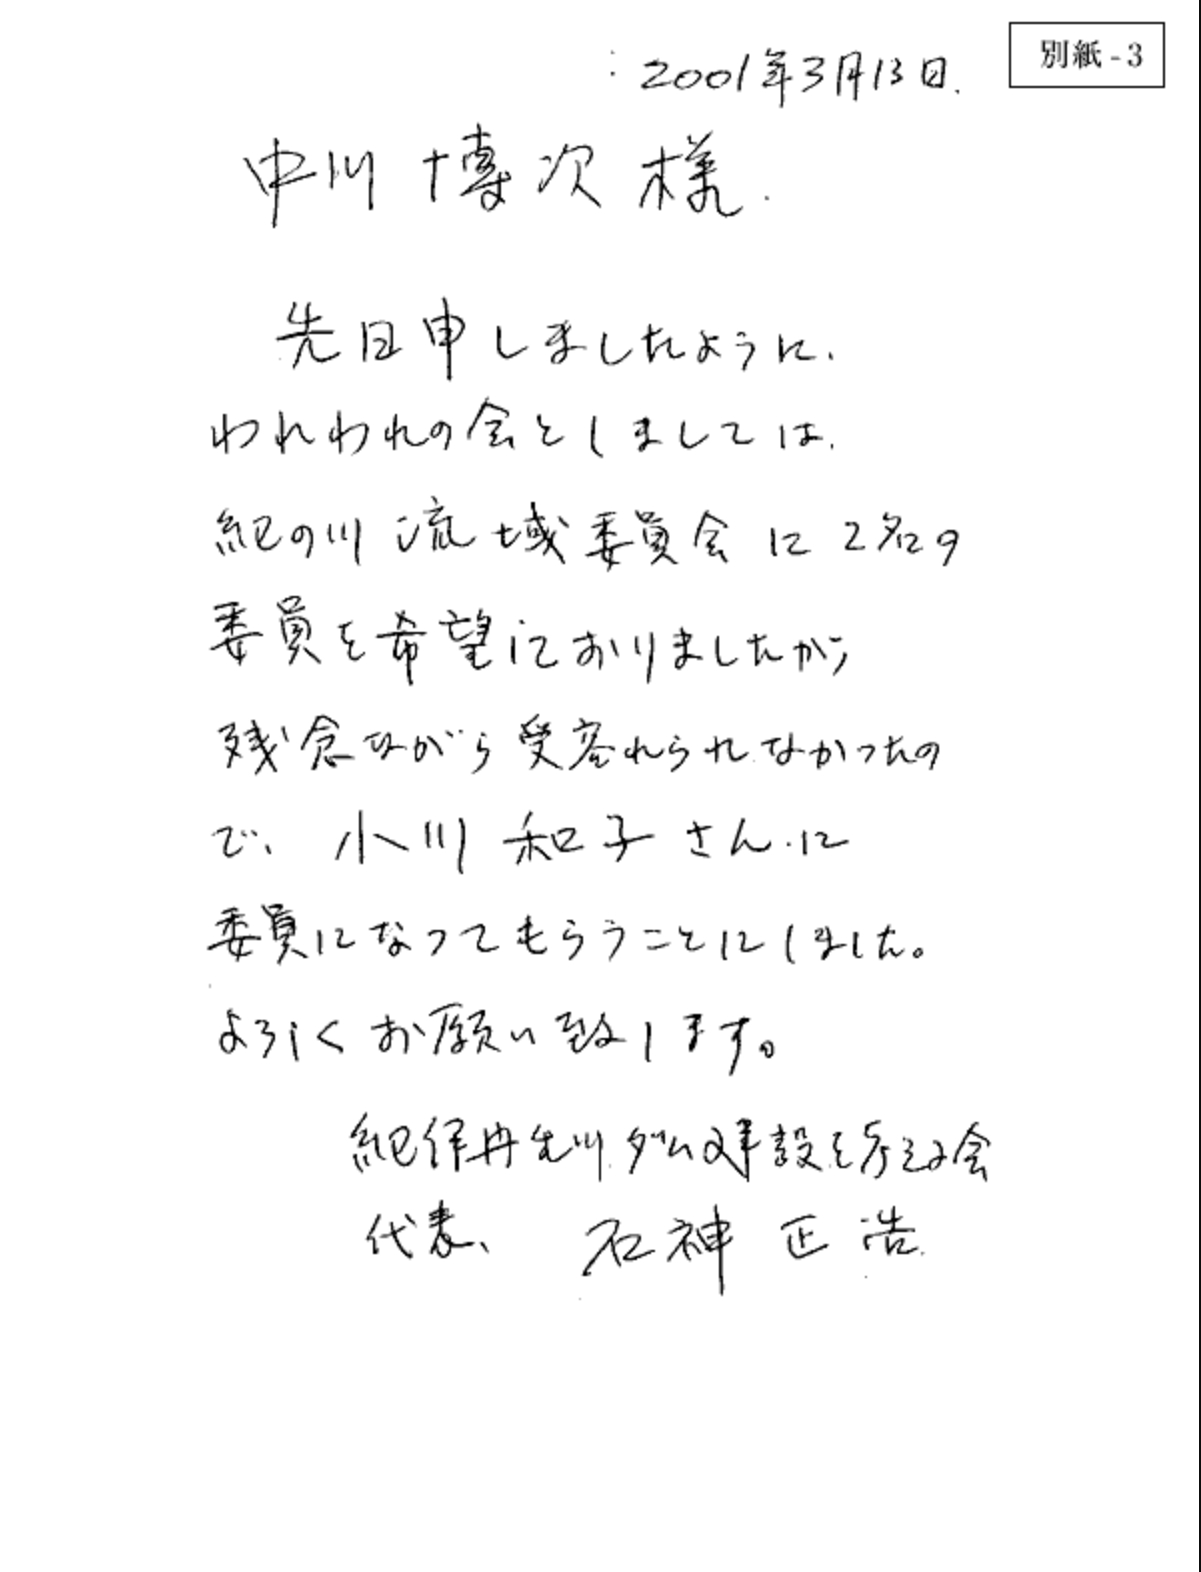 別紙-3
2001年3月13日.
中川 博次 様.
先日申しましたように、
われわれの会としましては、
紀の川 流域委員会 に 2名の
委員を希望しておりましたが
残念ながら受容れられなかったの
で、 小川 和子 さんに
委員になってもらうことにしました。
よろしく お願い致します。
紀伊丹生川ダム建設を考える会
代表、 石神 正浩